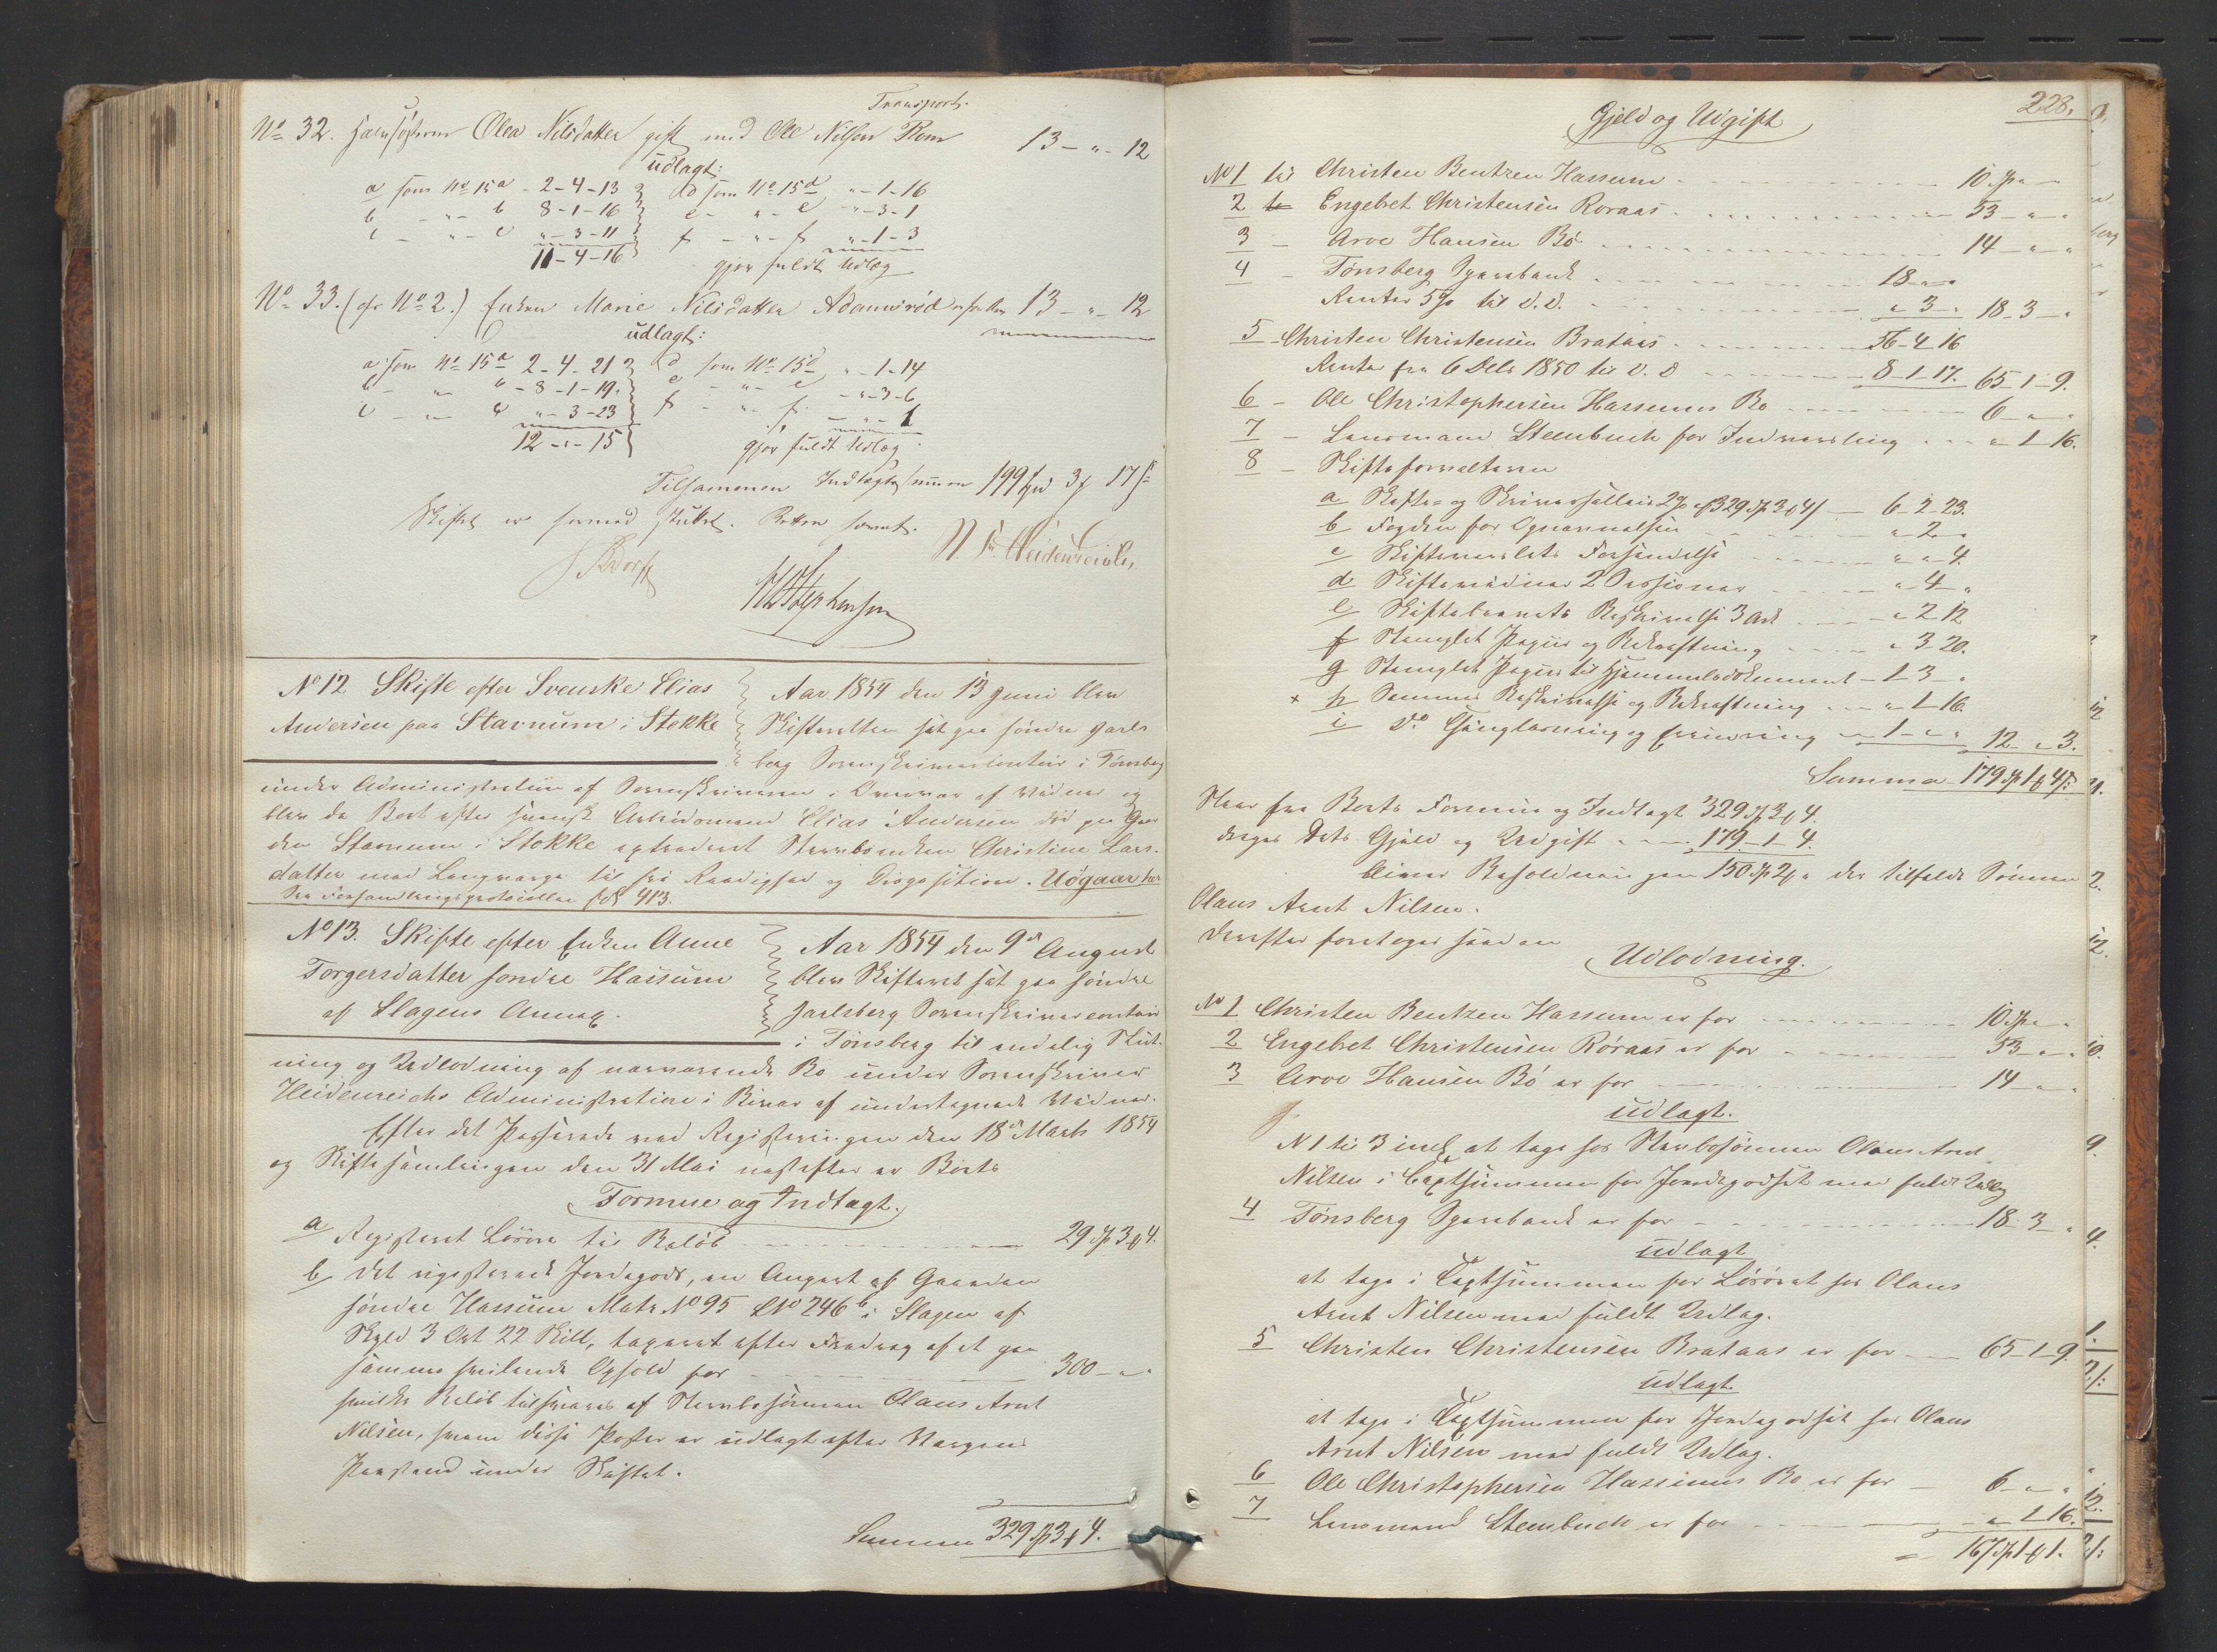 Transport.
No 32. Halvsøsteren Olea Nilsdatter gift med Ole Nilsen Rom 13 – " – 12
udlagt:
a som No 15a - 2-4-13 d som No 15d " - 1-16
b - " - b 8-1-16 e - " - e " - 3-1
c - " - c " - 3-11 f - " - f " - 1-3
11-4-16 gjør fuldt Udlæg
No 33. (cfr No 2.) Enken Marie Nilsdatter Adamsrød 13 – " – 12
udlagt:
a som No 15a 2-4-21 d som No 15d " - 1-14
b - " - b - 8-1-19 e - " - e - " - 3-6
c - " - c " - 3-23 f - " - f - " - 1
12 - " - 15 gjør fuldt Udlæg
Tilsammen Indtægtssummen 199 Spd 3 17 s
Skiftet er hermed sluttet. Retten hævet.
N Fr. Heidenreich
No 12 Skifte efter Svenske Elias
Andersen paa Stavnum i Stokke
Aar 1854 den 13 Juni blev
Skifteretten sat paa søndre Jarls
berg Sorenskrivercontoir i Tønsberg
under Administration af Sorenskriveren i Overvær af Vidner og
blev da Boet efter svensk Arbeidsmand Elias Andersen død paa Gaar
den Stavnum i Stokke extraderet Stervboenken Christine Lars-
datter med Laugværge til fri Raadighed og Disposition. Udgaar her
See Forhandlingsprotocollen fol 413.
No 13. Skifte efter Enken Anne
Torgersdatter søndre Hassum
af Slagens Annex.
Aar 1854 den 9de August
blev Skifteret sat paa søndre
Jarlsberg Sorenskrivercontoir
i Tønsberg til endelig Slut-
ning og Udlodning af nærværende Bo under Sorenskriver
Heidenreichs Administration i Bivær af undertegnede Vidner.
Efter det Passerede ved Registeringen den 18de Marts 1854
og Skiftesamlingen den 31 Mai næstefter er Boets
Formue og Indtægt.
a Registeret Løsøre til Beløb 29 Sp 3 4.
b det registerede Jordegods, en Anpart af Gaarden
søndre Hassum Matr. No 95 LNo 246b i Slagen af
Skyld 3 Ort 22 Skill, taxeret efter Fradrag af et paa
samme hvilende Ophold for 300 - " -
hvilke Beløb tilsvares af Stervbosønnen Olaus Arnt
Nilsen, hvem disse Poster er udlagt efter Værgens
Paastand under Skiftet.
Summa 329 Sp 3 4.
228.
Gjeld og Udgift
No 1 til Christen Bentzen Hassum 10 Sp " -
2 til Engebret Christensen Roraas 53 - " - "
3 - Arve Hansen Bø 14 - " - "
4 - Tønsberg Sparebank 18 - " -
Renter 5% til d. D. " 3 - " 18-3 - "
5 - Christen Christensen Brataas 56-4-16
Renter fra 6 Decb 1850 til d. D 8-1-17. 65-1-9.
6 - Ole Christophersen Hassums Bo 6 - " -
7 - Lensmand Steenbuch for Indvarsling " 1-16.
8 - Skifteforvalteren
a Skifte- og Skriversallair 2% af 329 Sp 3 4 6-2-23.
b Fogden for Opnævnelsen " 2 - "
c Skiftevarslets Forsendelse " " 4.
d Skiftevidner 2 Sessioner " 4 - "
e Skiftebrevets Beskrivelse 3 Ark " 2-12
f Stemplet Papiir og Bekræftning " 3 20.
g Stemplet Papiir til Hjemmelsdokument - 1 3 - "
× h Sammes Beskrivelse og Bekræftning " 1-16.
i Do Thinglæsning og Erindring 1 - " - " 12 - " 3.
Summa 179 Sp 1 4 s:
Naar fra Boets Formue og Indtægt 329 Sp 3 4.
drages dets Gjeld og Udgift 179-1-4.
bliver Beholdningen 150 Sp 2 " der tilfalde Sønnen
Olaus Arnt Nilsen.
Derefter foretages saadan
Udlodning.
No 1 Christen Bentzen Hassum er for 10 Sp " "
2 Engebret Christensen Røraas er for 53 - " - "
3 Arve Hansen Bø er for 14 - " - "
udlagt.
N 1 til 3 incl, at tage hos Stervbosønnen Olaus Arnt
Nilsen i Taxtsummen for Jordegodset med fuldt Udlæg
4 Tønsberg Sparebank er for 18-3 - "
udlagt
at tage i Taxtsummen for Løsøret hos Olaus
Arnt Nilsen med fuldt Udlæg.
5 Christen Christensen Brataas er for 65-1-9.
udlagt
at tage i Taxtsummen for Jordegodset hos Olaus
Arnt Nilsen med fuldt Udlæg.
6 Ole Christophersen Hassums Bo er for 6 - " - "
7 Lensmand Steenbuch er for - " 1 16.
167 Sp 1 1.